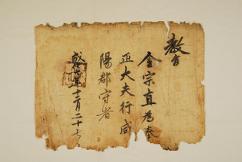 教旨
金宗直為奉
正大夫行咸
陽郡守者
年十二月二十